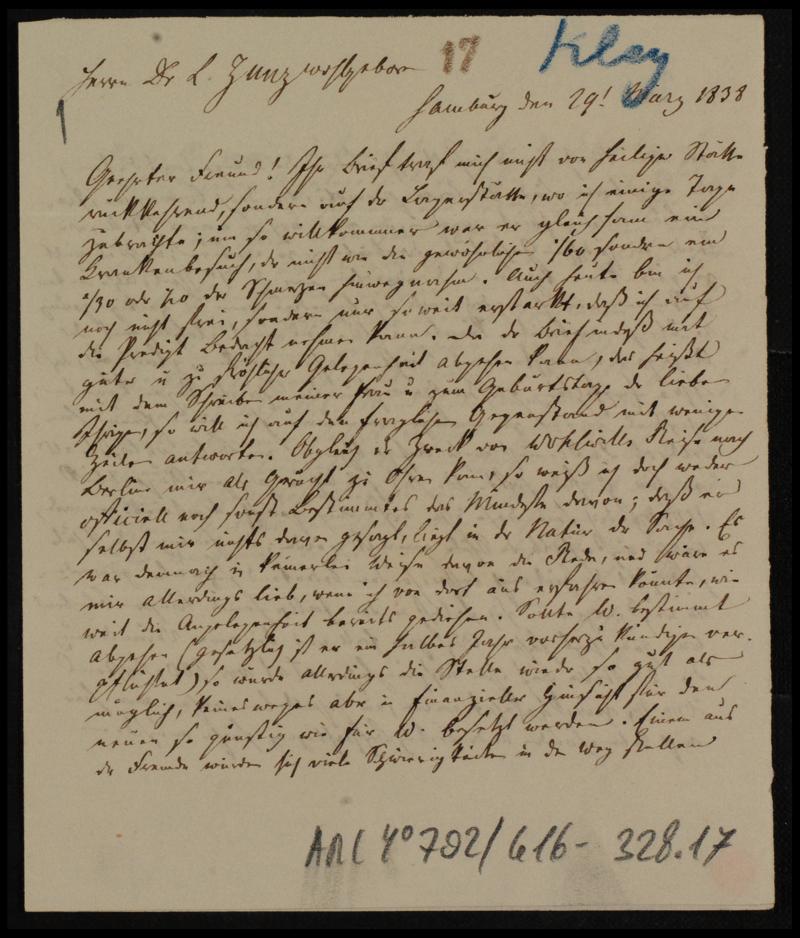 17
Kley
Herrn Dr L. Zunz wohlgeborn
Hamburg den 29! März 1838
1
Geehrter Freund! Ihr Brief traf mich nicht von heiliger Stätte
rückkehrend, sondern auf der Lagerstätte, wo ich einige Tage
zubrachte; um so willkommner war er gleichsam ein
Krankenbesuch, der nicht wie die gewöhnlichen 1/60 sondern ein
1/30 oder 1/20 der Schmerzen hinwegnahm. Auch heute bin ich
noch nicht frei, sondern nur soweit erstarkt, daß ich auf
die Predigt Bedacht nehmen kann. Da der Brief indeß mit
guter u zu fröhlicher Gelegenheit abgehen kann, das heißt
mit dem Schreiben meiner Frau u zum Geburtstage der lieben
Ihrigen, so will ich auf den fraglichen Gegenstand mit wenigen
Zeilen antworten. Obgleich der Zweck von Wohlwills Reise nach
Berlin mir als Gerücht zu Ohren kam, so weiß ich doch weder
officiell noch sonst Bestimmtes das Mindeste davon; daß er
selbst mir nichts davon gesagt, liegt in der Natur der Sache. Es
war demnach in keinerlei Weise davon die Rede, und wäre es
mir allerdings lieb, wenn ich von dort aus erfahren könnte, wie
weit die Angelegenheit bereits gediehen. Sollte W. bestimmt
abgehen (gesetzlich ist er ein halbes Jahr vorher zu kündigen ver-
pflichtet) so würde allerdings die Stelle wieder so gut als
möglich, keineswegs aber in finanzieller Hinsicht für den
neuen so günstig wie für W. besetzt werden. Einem aus
der Fremde würden sich viele Schwierigkeiten in den Weg stellen
ARC 4° 792/G16- 328.17